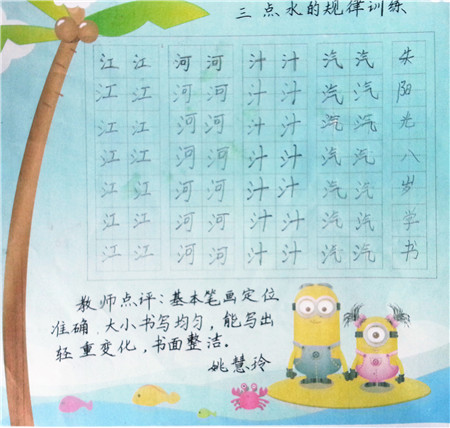 三点水的规律训练
江 江 河 河 汁 汁 汽 汽 朱
江 江 河 河 汁 汁 汽 汽 阳
江 江 河 河 汁 汁 汽 汽 光
江 江 河 河 汁 汁 汽 汽 八
江 江 河 河 汁 汁 汽 汽 岁
江 江 河 河 汁 汁 汽 汽 学
江 江 河 河 汁 汁 汽 汽 书
教师点评:基本笔画定位
准确、大小书写均匀,能写出
轻重变化,书面整洁。
姚慧玲